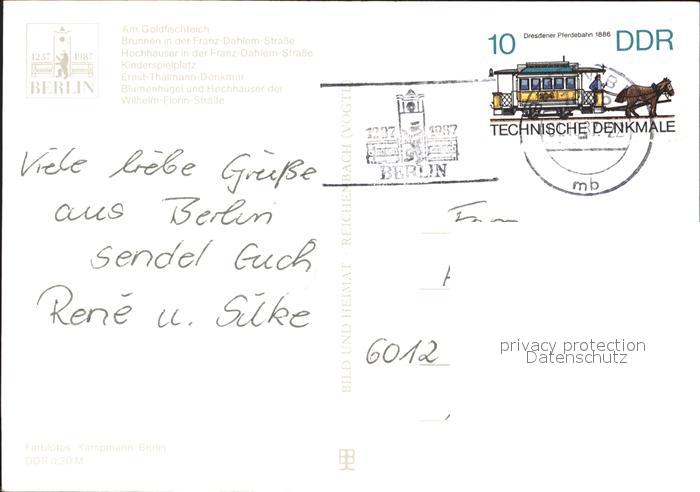 Am Goldfischteich
Brunnen in der Franz-Dahlem-Straße
Hochhäuser in der Franz-Dahlem-Straße
Kinderspielplatz
Ernst-Thälmann-Denkmal
Blumenhügel und Hochhäuser der
Wilhelm-Florin-Straße
1237 1987
BERLIN
Dresdener Pferdebahn 1886
10 DDR
TECHNISCHE DENKMALE
1237 1987
BERLIN
mb
Viele liebe Grüße
aus Berlin
sendet Euch
René u. Silke
BILD UND HEIMAT · REICHENBACH (VOGTL)
6012
privacy protection
Datenschutz
Farbfotos: Kampmann, Berlin
DDR 0,20 M